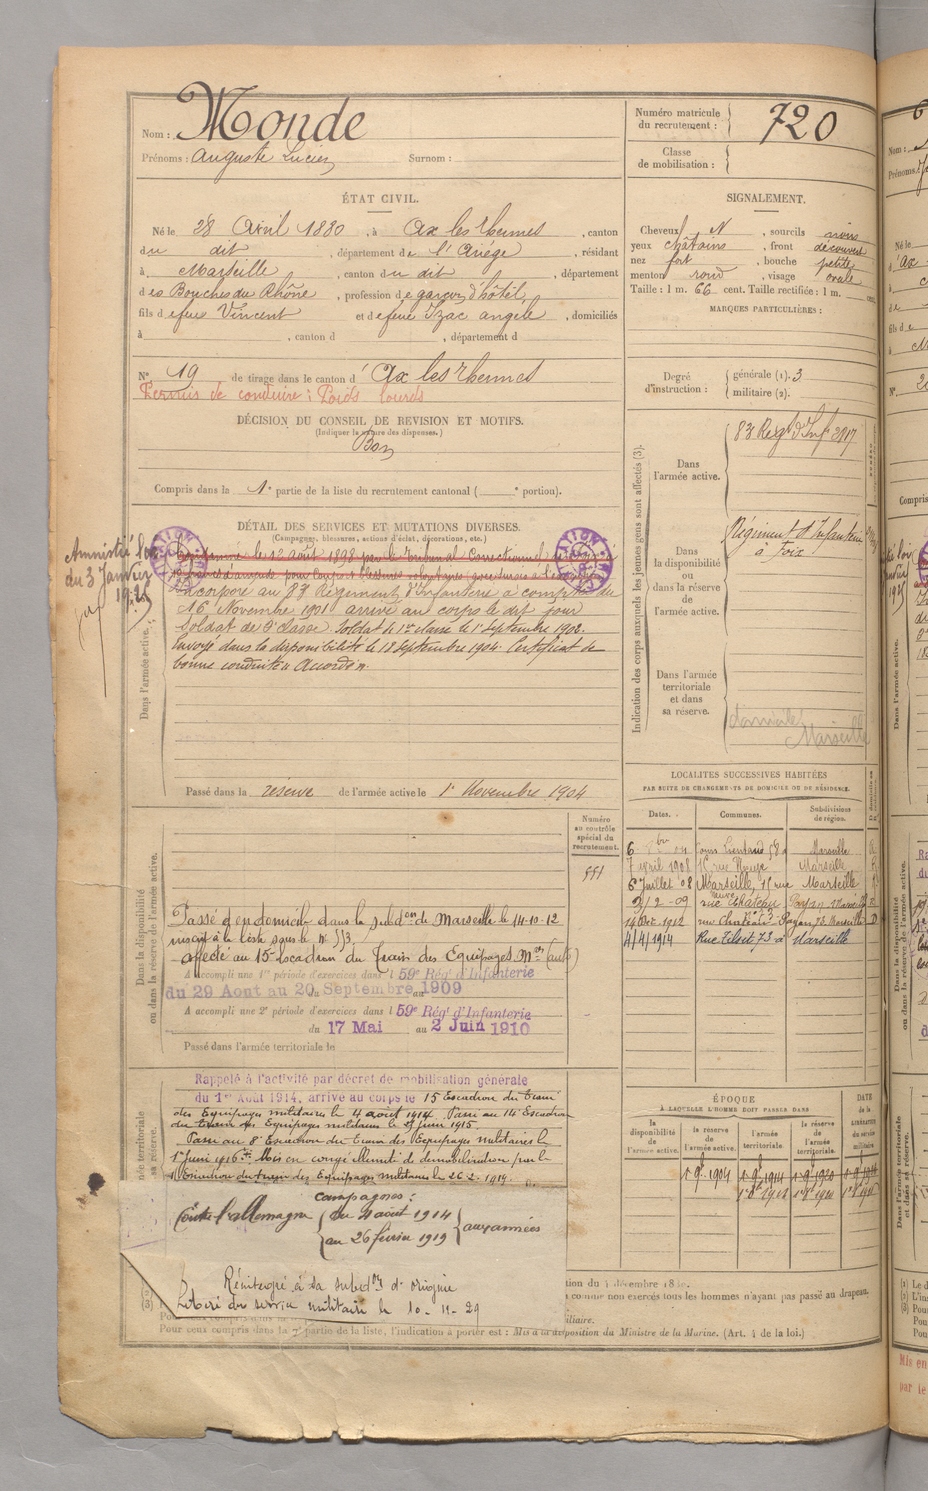 Nom : Monde
Prénoms : Auguste Lucien Surnom :
Numéro matricule du recrutement : 720
Classe de mobilisation :
ÉTAT CIVIL.
Né le 28 Avril 1880, à Ax les Thermes, canton
du dit, département de l'Ariège, résidant
à Marseille, canton du dit, département
des Bouches du Rhône, profession de garçon d'hôtel,
fils de feu Vincent et de feue Izac Angèle, domiciliés
à , canton d , département d
N° 19 de tirage dans le canton d'Ax les Thermes
Permis de conduire : Poids lourds
DÉCISION DU CONSEIL DE REVISION ET MOTIFS.
(Indiquer la nature des dispenses.)
Bon
Compris dans la 1e partie de la liste du recrutement cantonal ( e portion).
SIGNALEMENT.
Cheveux N, sourcils noirs
yeux chatains, front découvert
nez fort, bouche petite
menton rond, visage ovale
Taille : 1 m. 66 cent. Taille rectifiée : 1 m. cent.
MARQUES PARTICULIÈRES :
Degré d'instruction : générale (1). 3
militaire (2).
Indication des corps auxquels les jeunes gens sont affectés (3).
Dans l'armée active. 83 Regt d'Inf 2817
Dans la disponibilité ou dans la réserve de l'armée active. Régiment d'Infanterie à Foix
Dans l'armée territoriale et dans sa réserve.
domicilié Marseille
DÉTAIL DES SERVICES ET MUTATIONS DIVERSES.
(Campagnes, blessures, actions d'éclat, décorations, etc.)
Amnistié loi
du 3 Janvier
1925
Dans l'armée active.
le 12 août 1898 par le tribunal Correctionnel
d'amende pour coups et blessures volontaires
Incorporé au 83e Régiment d'Infanterie à compter du
16 Novembre 1901 arrivé au corps le dit jour
Soldat de 2e classe. Soldat de 1re classe le 1er Septembre 1902.
Envoyé dans la disponibilité le 18 septembre 1904. Certificat de
bonne conduite "Accordé".
Passé dans la réserve de l'armée active le 1er Novembre 1904
LOCALITÉS SUCCESSIVES HABITÉES
PAR SUITE DE CHANGEMENTS DE DOMICILE OU DE RÉSIDENCE.
Dates. Communes. Subdivisions de région.
6 bre 04 cours Lieutaud 58 Marseille
7 avril 1908 rue Rouge Marseille
6 Juillet 08 Marseille, rue Marseille
2/2-09 rue Château Payan Marseille
14 Oct. 1912 rue Chateau Payan 73 Marseille D
4/4/1914 Rue Tilsit 73 à Marseille
Dans la disponibilité ou dans la réserve de l'armée active.
Numéro au contrôle spécial du recrutement.
551
Passé d'en domicile dans la subdon de Marseille le 14-10-12
inscrit à la liste sous le n° 553.
affecté au 15e Escadron du Train des Equipages Mres (auto)
A accompli une 1re période d'exercices dans l 59e Rég. d'Infanterie
du 29 Aout au 20 Septembre 1909
A accompli une 2e période d'exercices dans l 59e Rég. d'Infanterie
du 17 Mai au 2 Juin 1910
Passé dans l'armée territoriale le
Rappelé à l'activité par décret de mobilisation générale
du 1er Août 1914, arrivé au corps le 15 Escadron du train
des Equipages militaires le 4 août 1914. Passé au 14e Escadron
du train des Equipages militaires le juin 1915.
Passé au 8e Escadron du train des Equipages militaires le
1er juin 1916. Mis en congé illimité de démobilisation par le
Escadron du train des Equipages militaires le 26-2-1919.
campagnes :
Contre l'allemagne du 4 août 1914 au 26 février 1919 aux armées
Réintégré à sa subdon d'origine
Libéré du service militaire le 10-11-29
ÉPOQUE
À LAQUELLE L'HOMME DOIT PASSER DANS
la disponibilité de l'armée active. la réserve de l'armée active. l'armée territoriale. la réserve de l'armée territoriale. DATE de la LIBÉRATION du service militaire
1 9 1904
tion du 4 décembre 18
comme non exercés tous les hommes n'ayant pas passé au drapeau.
iliaire.
Pour ceux compris dans la 2e partie de la liste, l'indication à porter est : Mis à la disposition du Ministre de la Marine. (Art. 4 de la loi.)